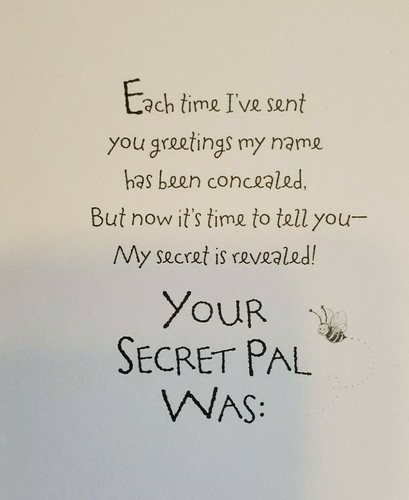 Each time I've sent
you greetings my name
has been concealed,
But now it's time to tell you—
My secret is revealed!
YOUR
SECRET PAL
WAS: